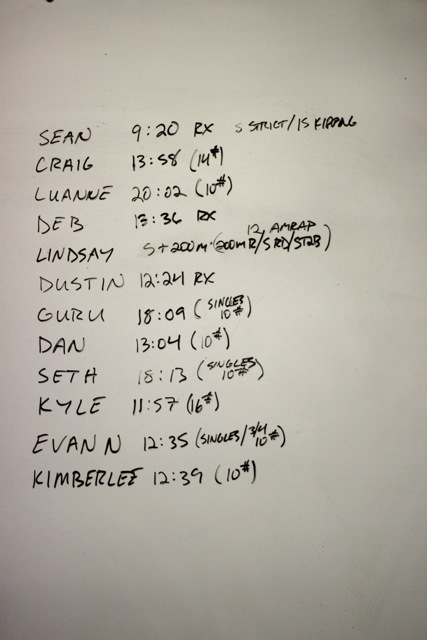 SEAN 9:20 RX 5 STRICT/15 KIPPING
CRAIG 13:58 (14#)
LUANNE 20:02 (10#)
DEB 13:36 RX
LINDSAY 5+200m (200mR/5RD/5T2B) 12 AMRAP
DUSTIN 12:24 RX
GURU 18:09 (SINGLES 10#)
DAN 13:04 (10#)
SETH 18:13 (SINGLES 10#)
KYLE 11:57 (16#)
EVAN N 12:35 (SINGLES/3/4 10#)
KIMBERLEE 12:39 (10#)